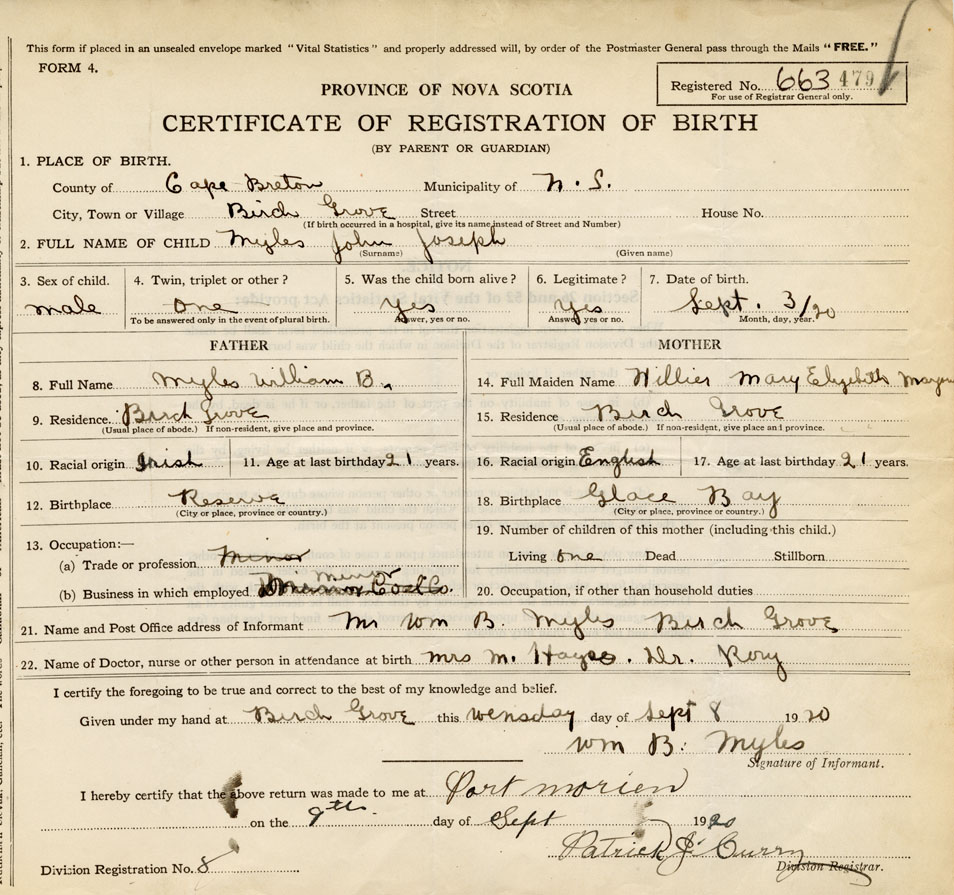 This form if placed in an unsealed envelope marked "Vital Statistics" and properly addressed will, by order of the Postmaster General pass through the Mails "FREE."
FORM 4.
Registered No. 663 479
For use of Registrar General only.
PROVINCE OF NOVA SCOTIA
CERTIFICATE OF REGISTRATION OF BIRTH
(BY PARENT OR GUARDIAN)
1. PLACE OF BIRTH.
County of Cape Breton Municipality of N. S.
City, Town or Village Birch Grove Street House No.
(If birth occurred in a hospital, give its name instead of Street and Number)
2. FULL NAME OF CHILD Myles John Joseph
(Surname) (Given name)
3. Sex of child. 4. Twin, triplet or other? 5. Was the child born alive? 6. Legitimate? 7. Date of birth.
male one yes yes Sept. 3/20
To be answered only in the event of plural birth. Answer, yes or no. Answer, yes or no. Month, day, year.
FATHER MOTHER
8. Full Name Myles William B. 14. Full Maiden Name Willier Mary Elyzibith
9. Residence. Birch Grove 15. Residence Birch Grove
(Usual place of abode.) If non-resident, give place and province. (Usual place of abode.) If non-resident, give place and province.
10. Racial origin Irish 11. Age at last birthday 21 years. 16. Racial origin English 17. Age at last birthday 21 years.
12. Birthplace Reserve 18. Birthplace Glace Bay
(City or place, province or country.) (City or place, province or country.)
19. Number of children of this mother (including this child.)
13. Occupation:—
(a) Trade or profession Minor Living one Dead Stillborn
(b) Business in which employed Minor Coal Co. 20. Occupation, if other than household duties
21. Name and Post Office address of Informant Mr Wm B. Myles Birch Grove
22. Name of Doctor, nurse or other person in attendance at birth Mrs M. Dr. Rory
I certify the foregoing to be true and correct to the best of my knowledge and belief.
Given under my hand at Birch Grove this wensday day of Sept 8 1920
Wm B. Myles
Signature of Informant.
I hereby certify that the above return was made to me at Port Morien
on the 9th day of Sept 1920
Patrick J. Curry
Division Registrar.
Division Registration No. 8